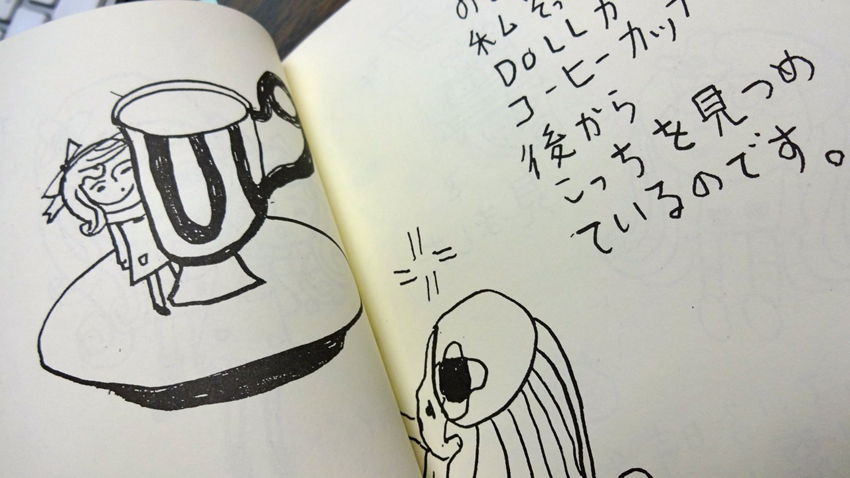 私そっ
DOLLが
コーヒーカップ
後から
こっちを見つめ
ているのです。